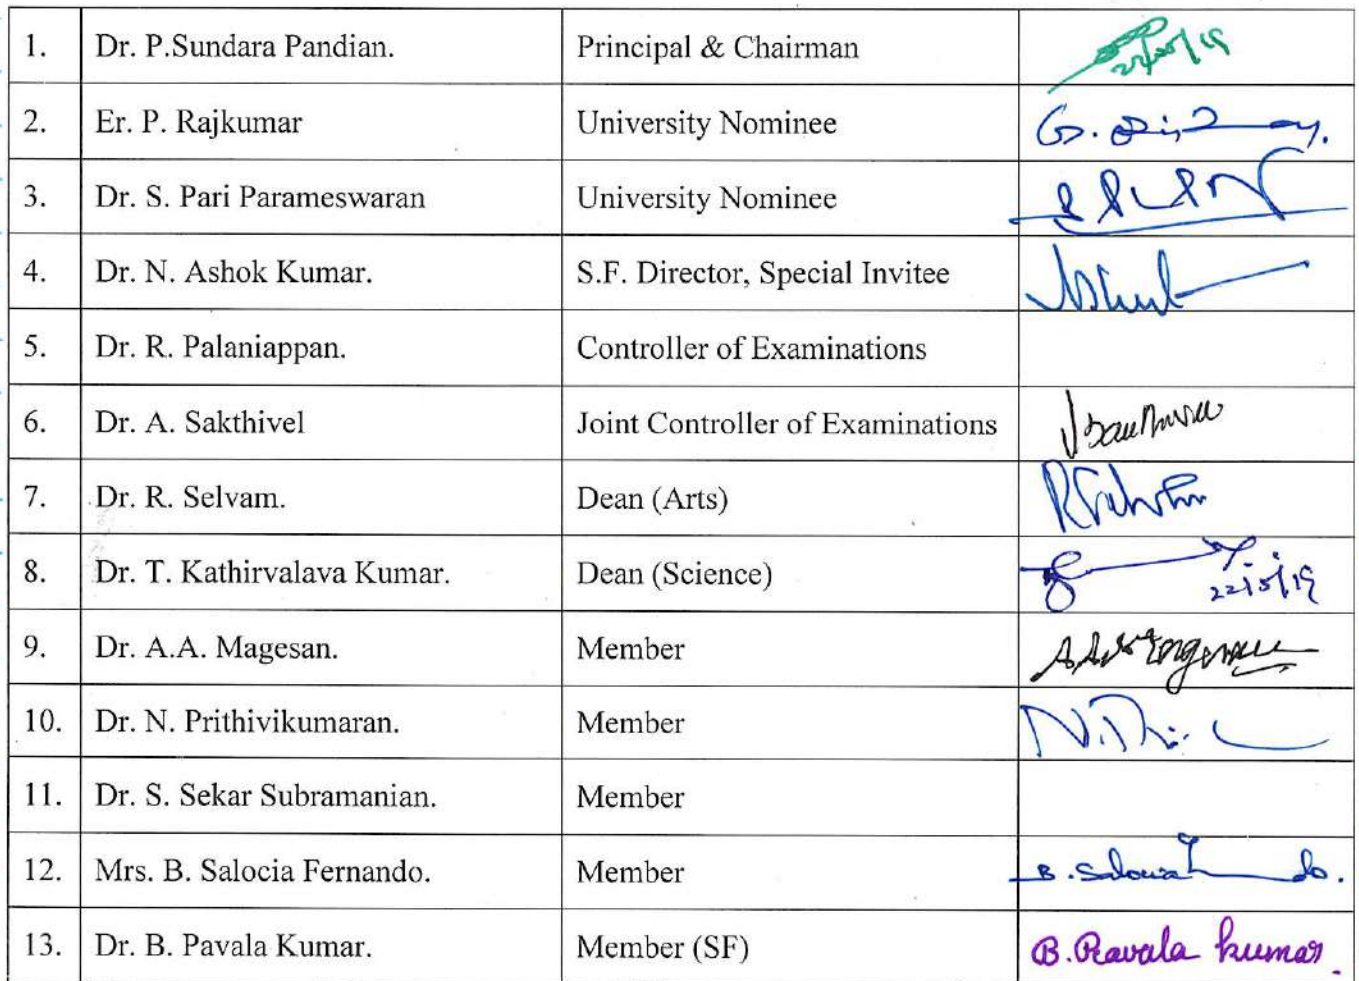 1. Dr. P.Sundara Pandian. Principal & Chairman 22/05/19
2. Er. P. Rajkumar University Nominee
3. Dr. S. Pari Parameswaran University Nominee
4. Dr. N. Ashok Kumar. S.F. Director, Special Invitee
5. Dr. R. Palaniappan. Controller of Examinations
6. Dr. A. Sakthivel Joint Controller of Examinations
7. Dr. R. Selvam. Dean (Arts)
8. Dr. T. Kathirvalava Kumar. Dean (Science) 22/5/19
9. Dr. A.A. Magesan. Member
10. Dr. N. Prithivikumaran. Member
11. Dr. S. Sekar Subramanian. Member
12. Mrs. B. Salocia Fernando. Member B. Salocia
13. Dr. B. Pavala Kumar. Member (SF) B. Pavala kumar.